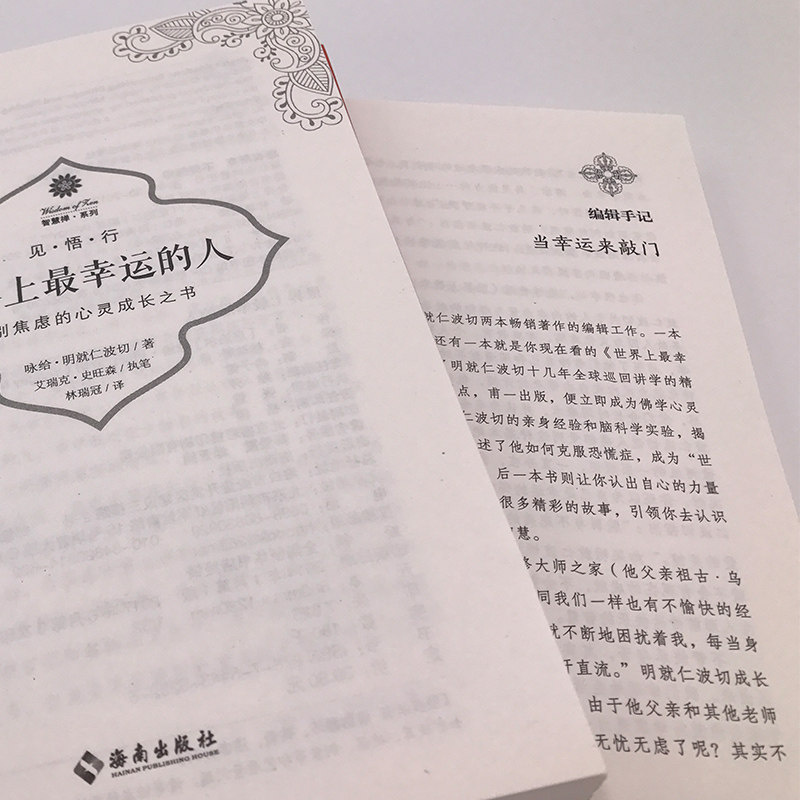 Wisdom of Zen
智慧禅·系列
见·悟·行
上最幸运的人
别焦虑的心灵成长之书
咏给·明就仁波切/著
艾瑞克·史旺森/执笔
林瑞冠/译
海南出版社
HAINAN PUBLISHING HOUSE
编辑手记
当幸运来敲门
就仁波切两本畅销著作的编辑工作。一本
还有一本就是你现在看的《世界上最幸
了明就仁波切十几年全球巡回讲学的精
点，甫一出版，便立即成为佛学心灵
仁波切的亲身经验和脑科学实验，揭
述了他如何克服恐慌症，成为“世
后一本书则让你认出自心的力量
很多精彩的故事，引领你去认识
慧。
修大师之家（他父亲祖古·乌
同我们一样也有不愉快的经
就不断地困扰着我，每当身
汗直流。”明就仁波切成长
由于他父亲和其他老师
无忧无虑了呢？其实不